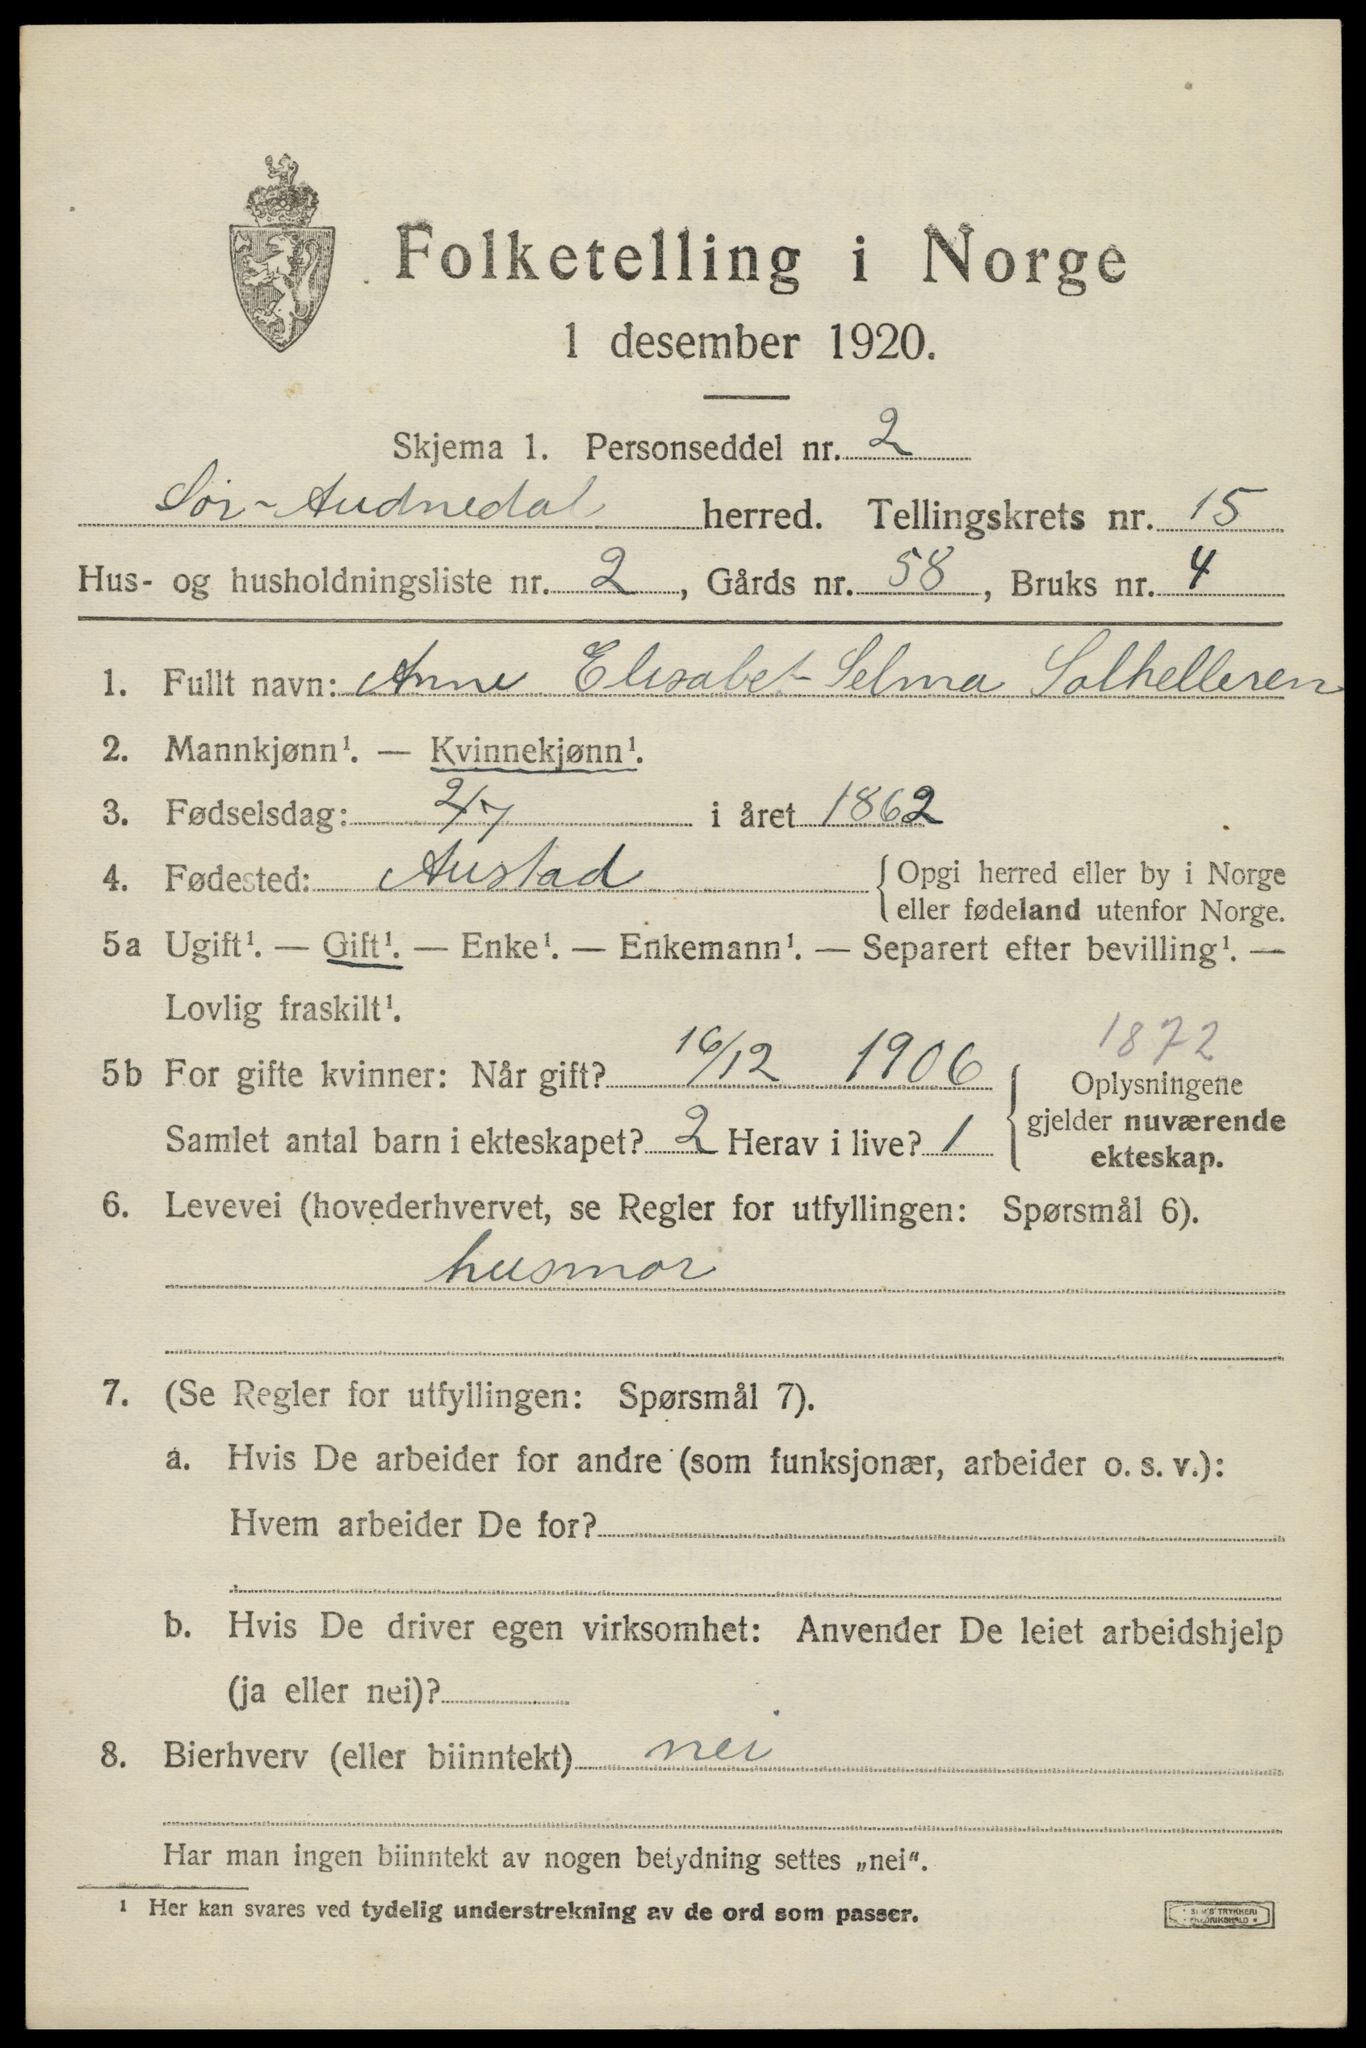 Folketelling i Norge
1 desember 1920.
Skjema 1. Personseddel nr. 2
Sør-Audnedal herred. Tellingskrets nr. 15
Hus- og husholdningsliste nr. 2, Gårds nr. 58, Bruks nr. 4
1. Fullt navn: Anne Elisabet Selma Solhelleren
2. Mannkjønn¹. — Kvinnekjønn¹.
3. Fødselsdag: 2/7 i året 1862
4. Fødested: Austad {Opgi herred eller by i Norge
eller fødeland utenfor Norge.
5a Ugift¹. — Gift¹. — Enke¹. — Enkemann¹. — Separert efter bevilling¹. —
Lovlig fraskilt¹.
1872
5b For gifte kvinner: Når gift? 16/12 1906 { Oplysningene
gjelder nuværende
Samlet antal barn i ekteskapet? 2 Herav i live? 1
ekteskap.
6. Levevei (hovederhvervet, se Regler for utfyllingen: Spørsmål 6).
husmor
7. (Se Regler for utfyllingen: Spørsmål 7).
a. Hvis De arbeider for andre (som funksjonær, arbeider o. s. v.):
Hvem arbeider De for?
b. Hvis De driver egen virksomhet: Anvender De leiet arbeidshjelp
(ja eller nei)?
8. Bierhverv (eller biinntekt) nei
Har man ingen biinntekt av nogen betydning settes „nei“.
¹ Her kan svares ved tydelig understrekning av de ord som passer.
TRYKKERI
FREDRIKSHALD